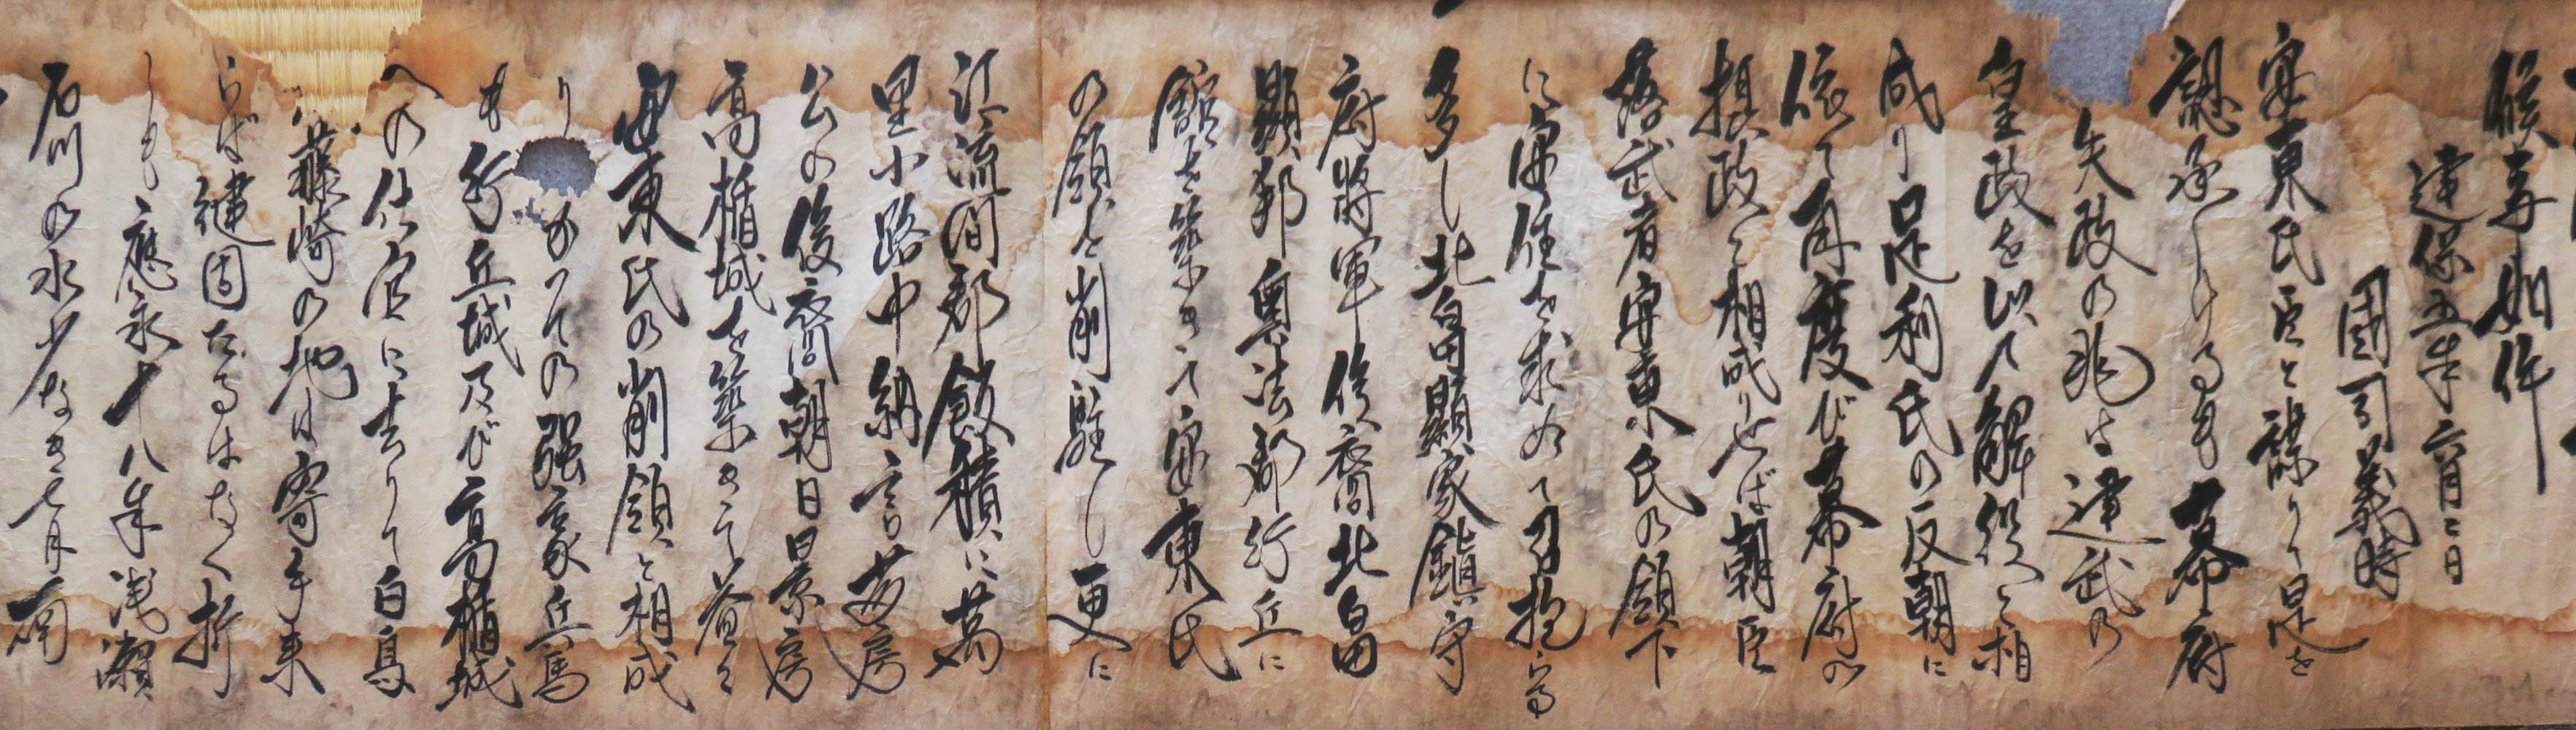 候事如件
建保五年六月二日
国司義時
安東氏臣と謀りて是を
懇承しけるも幕府
失政の兆は建武の
皇政を以て解役と相
成り足利氏の反朝に
依て再度び幕府の
摂政と相成りせば朝臣
落武者安東氏の領下
に安住を求めて司抱らる
多し北畠顕家鎮守
府将軍後裔北畠
顕邦奥法郡行丘に
舘を築きて安東氏
の領を削駐し更に
江流澗郡飯積に萬
里小路中納言藤房
公の後裔朝日景房
高楯城を築きて益々
安東氏の削領と相成
り かつての強豪兵馬
も行丘城及び高楯城
への仕官に走りて白鳥
藤崎の地は寄手来
らば堅固なるはなく折
しも應永十八年浅瀬
石川の水少なき七月南